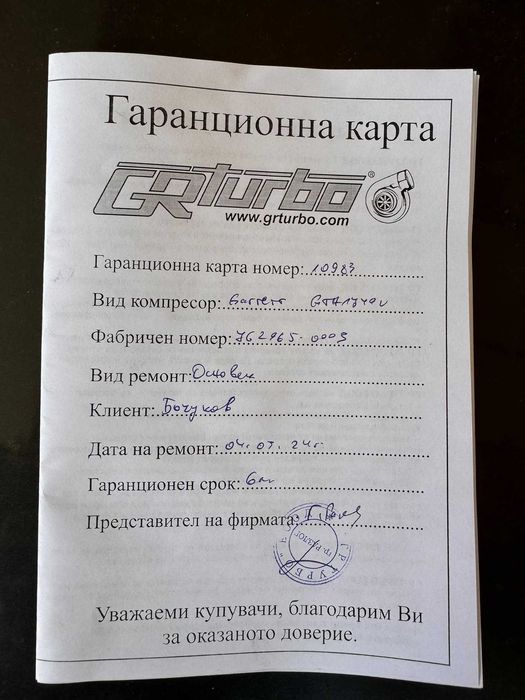 Гаранционна карта
GRturbo®
www.grturbo.com
Гаранционна карта номер: 10983
Вид компресор: Garrett GTA1749V
Фабричен номер: 762965-0003
Вид ремонт: Основен
Клиент: Бочуков
Дата на ремонт: 04.07.24г.
Гаранционен срок: 6м
Представител на фирмата:
Уважаеми купувачи, благодарим Ви
за оказаното доверие.